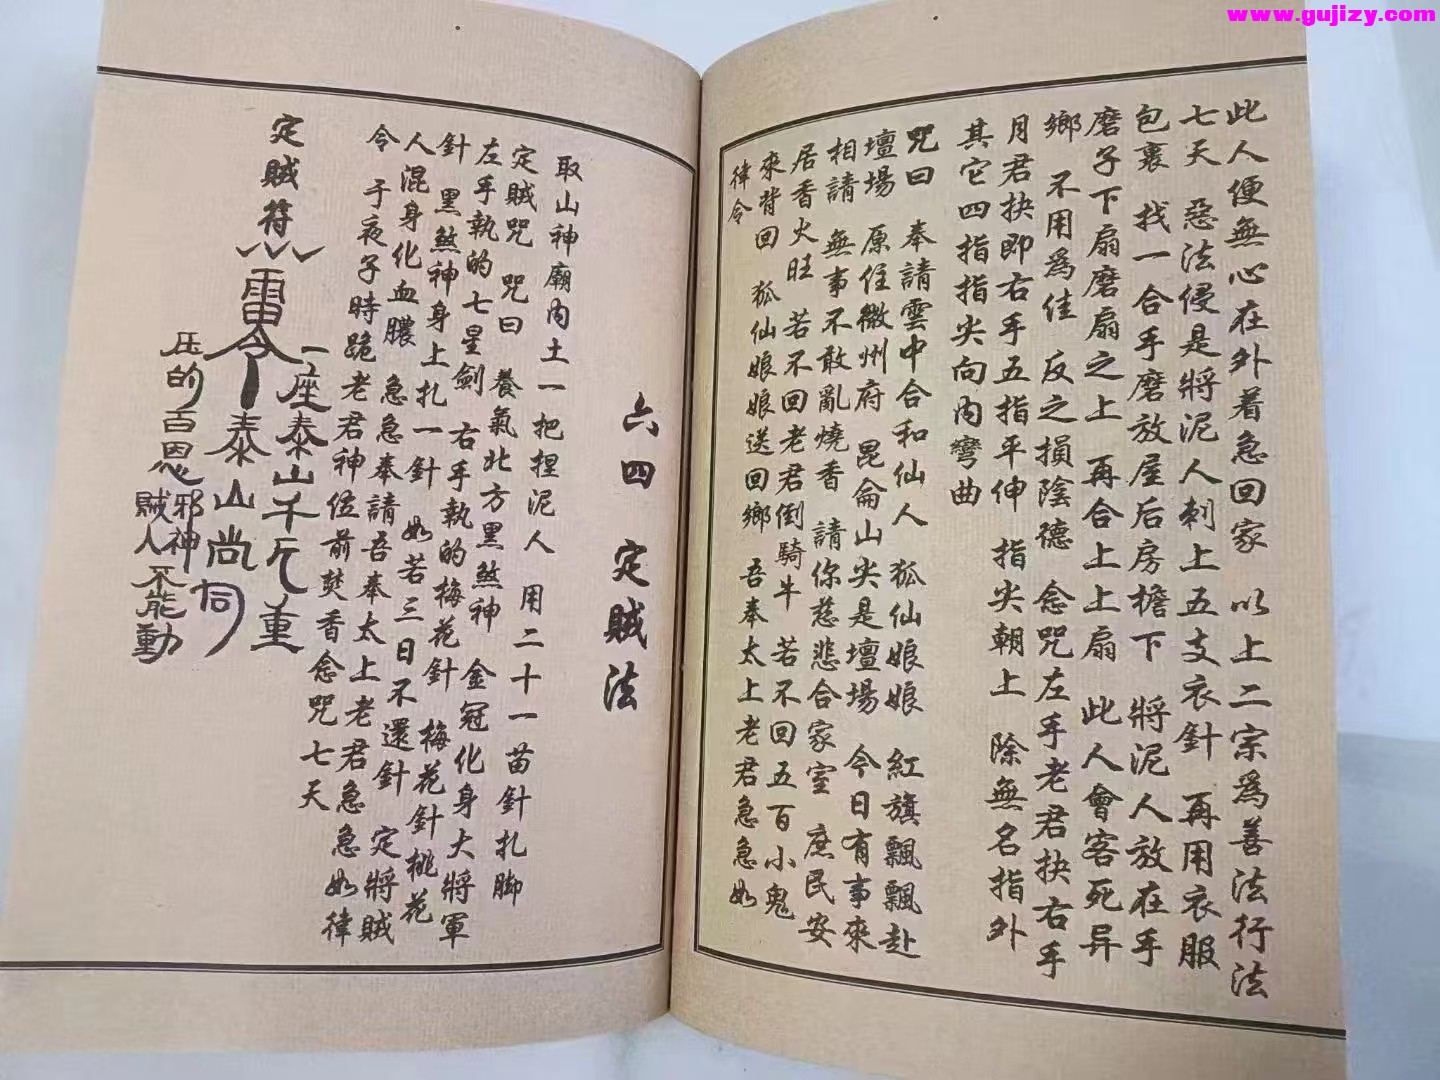 www.gujizy.com
此人便無心在外着急回家 以上二宗爲善法行法
七天 惡法侵是將泥人刺上五支衣針 再用衣服
包裹 找一合手磨放屋后房檐下 將泥人放在手
磨子下扇磨扇之上 再合上上扇 此人會客死异
鄉 不用爲佳 反之損陰德 念咒左手老君抉右手
月君抉即右手五指平伸 指尖朝上 除無名指外
其它四指指尖向内彎曲
咒曰 奉請雲中合和仙人 狐仙娘娘 紅旗飄飄赴
壇場 原住徽州府 昆侖山尖是壇場 今日有事來
相請 無事不敢亂燒香 請你慈悲合家室 庶民安
居香火旺 若不回老君倒騎牛 若不回五百小鬼
來背回 狐仙娘娘送回鄉 吾奉太上老君急急如
律令
六四 定賊法
取山神廟内土一把捏泥人 用二十一苗針扎脚
定賊咒 咒曰 養氣北方黑煞神 金冠化身大將軍
左手執的七星劍 右手執的梅花針 梅花針桃花
針 黑煞神身上扎一針 如若三日不還針 定將賊
人混身化血膿 急急奉請吾奉太上老君急急如律
令 于夜子時跪老君神位前焚香念咒七天
定賊符
雷令
一座泰山千斤重
泰山尚同
压的百恩邪神
賊人不能動